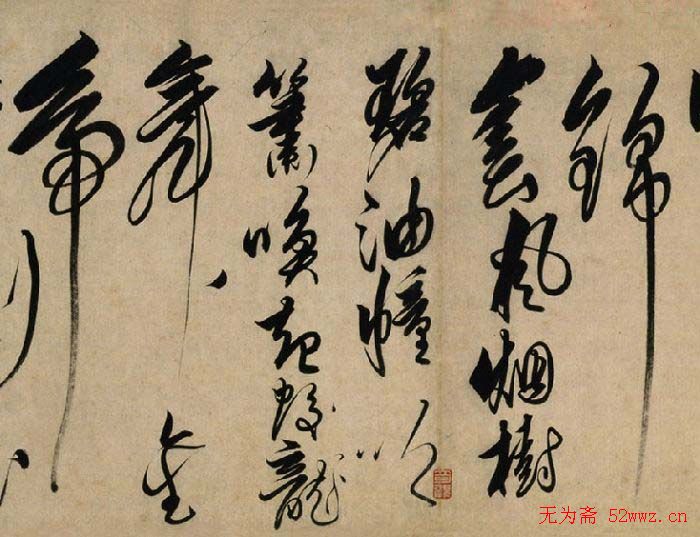 錦
雲風烟樹
碧油幢吹
簫喚起蛟龍
舞
无为斋 52wwz.cn